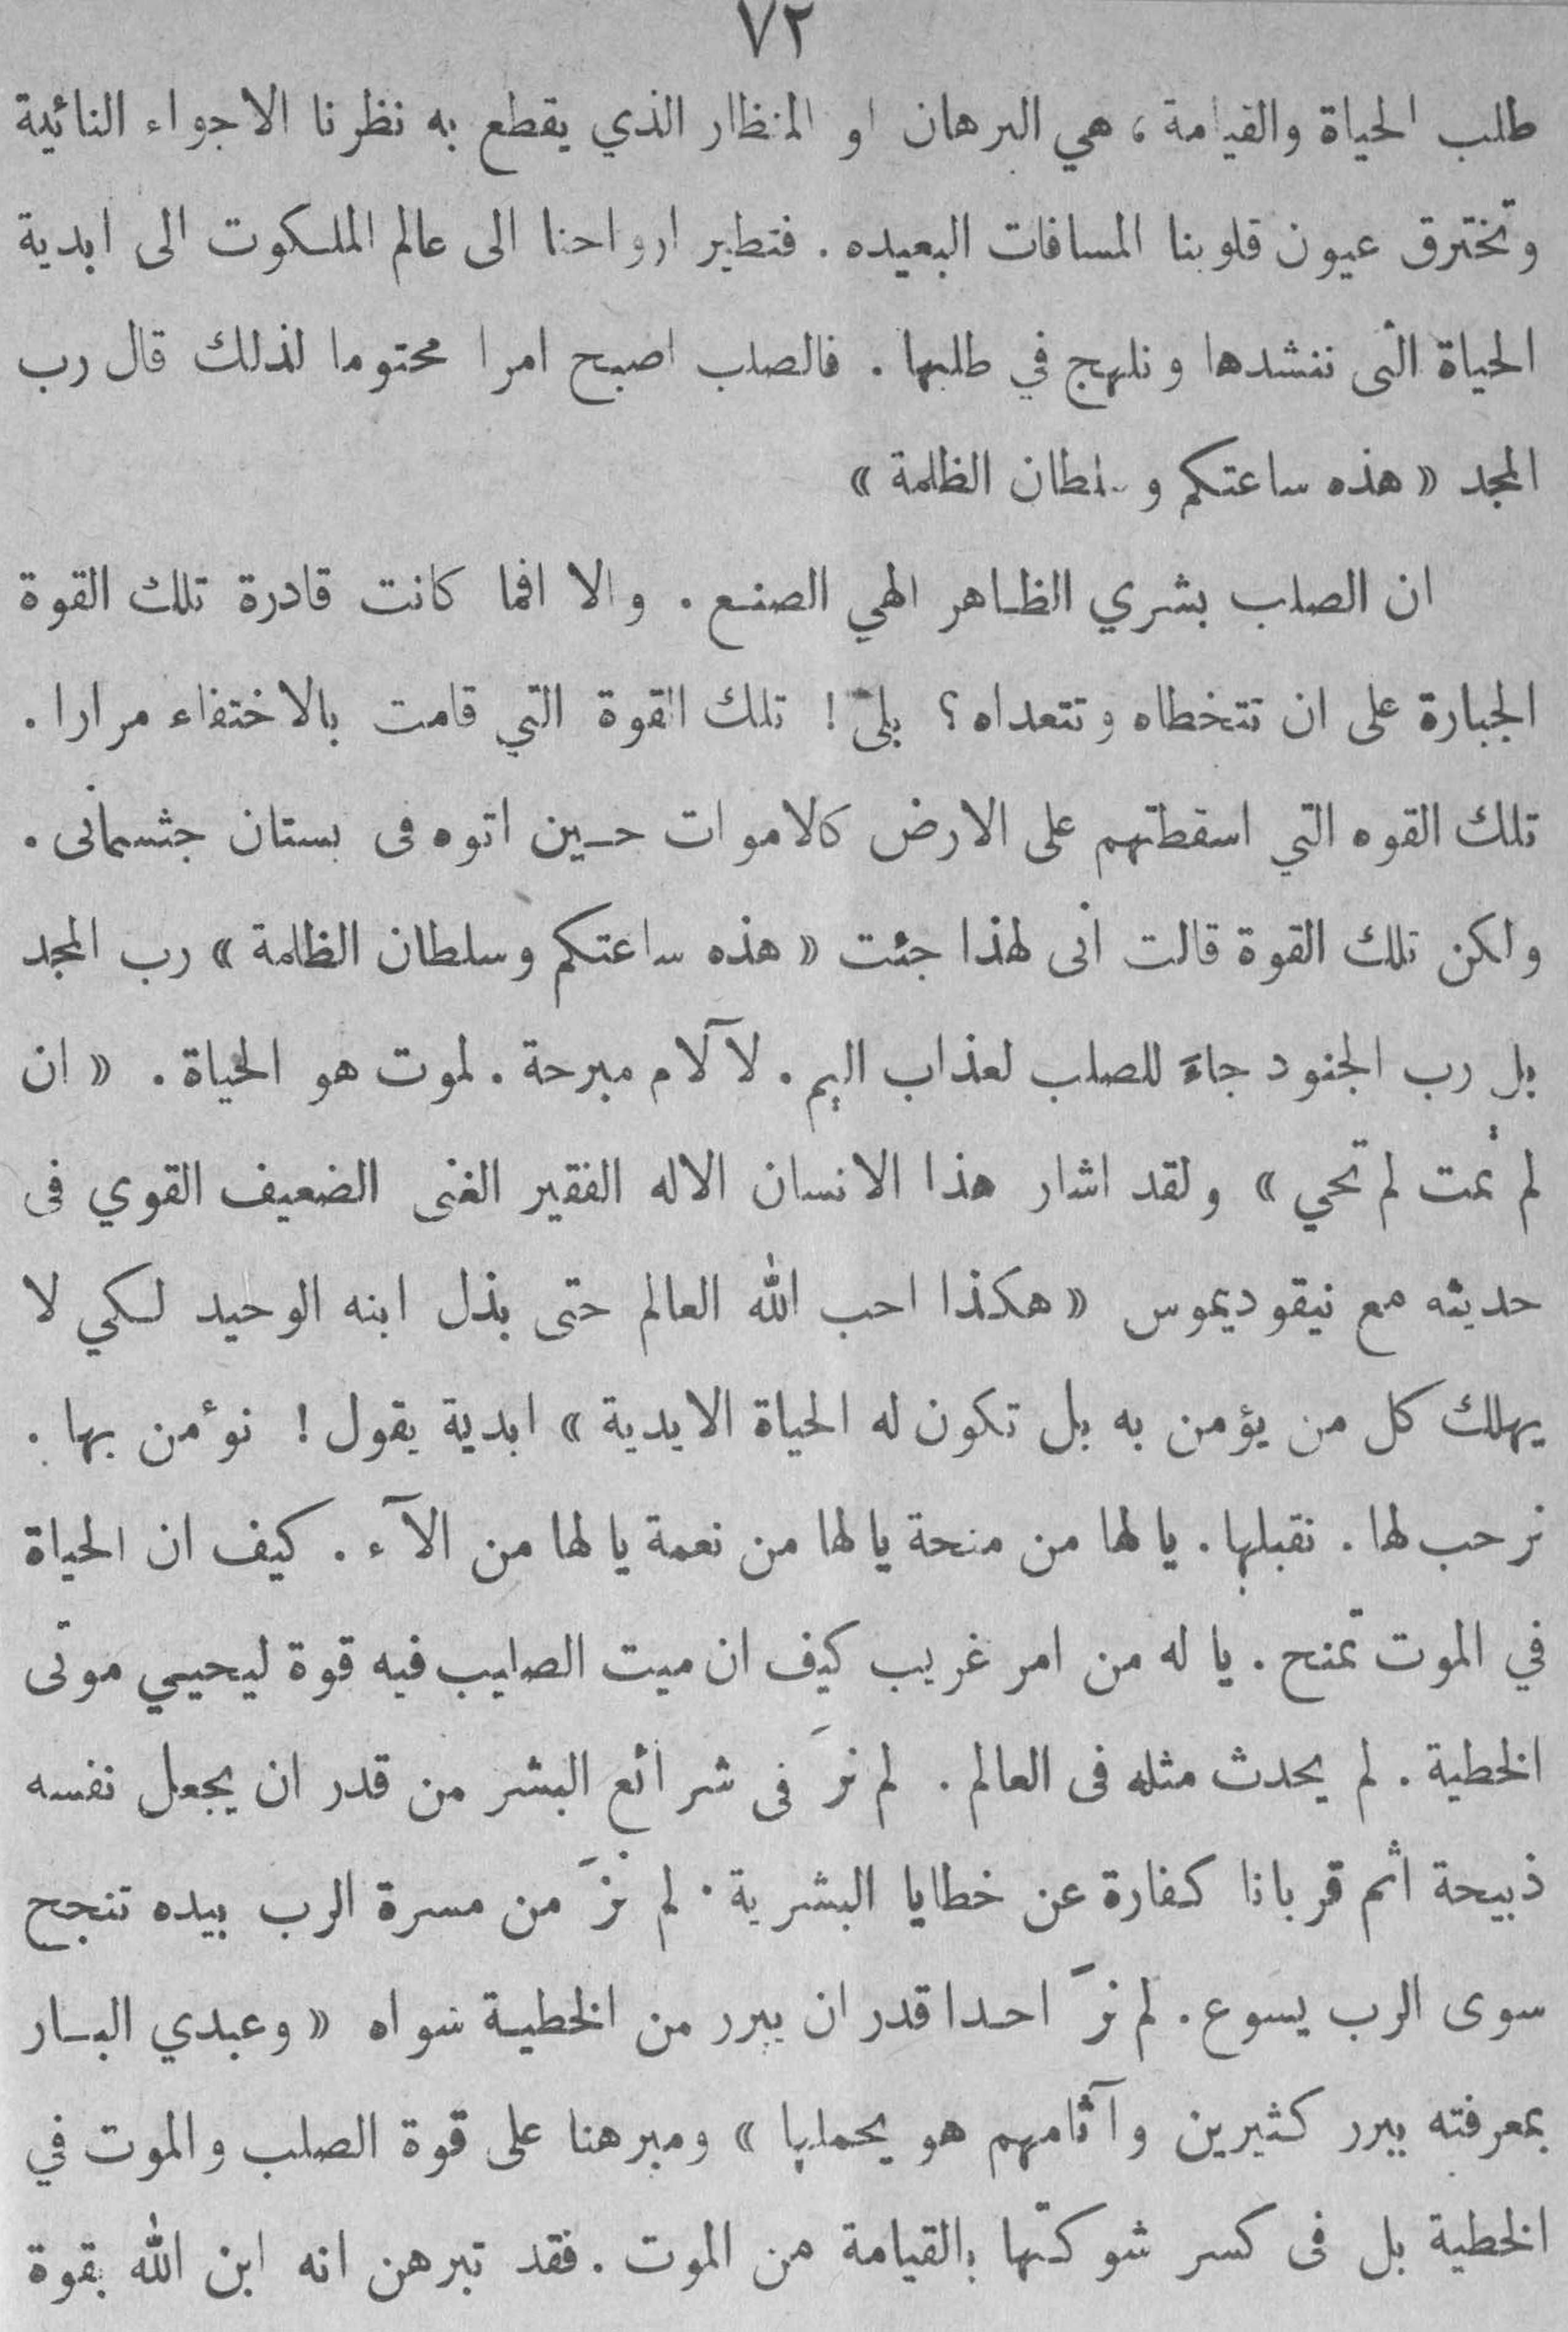 ٧٢
طلب الحياة والقيامة ، هي البرهان او المنظار الذي يقطع به نظرنا الاجواء النائية
وتخترق عيون قلوبنا المسافات البعيده . فتطير ارواحنا الى عالم الملكوت الى ابدية
الحياة التى ننشدها ونلهج في طلبها . فالصلب اصبح امرا محتوما لذلك قال رب
المجد « هذه ساعتكم وسلطان الظلمة »
ان الصلب بشري الظاهر الهي الصنع . والا افما كانت قادرة تلك القوة
الجبارة على ان تتخطاه وتتعداه ؟ بلى ! تلك القوة التي قامت بالاختفاء مرارا .
تلك القوه التي اسقطتهم على الارض كالاموات حين اتوه فى بستان جثسمانى .
ولكن تلك القوة قالت انى لهذا جئت « هذه ساعتكم وسلطان الظلمة » رب المجد
بل رب الجنود جاء للصلب لعذاب اليم . لآلام مبرحة . لموت هو الحياة . « ان
لم تمت لم تحي » ولقد اشار هذا الانسان الاله الفقير الغنى الضعيف القوي فى
حديثه مع نيقوديموس « هكذا احب الله العالم حتى بذل ابنه الوحيد لكي لا
يهلك كل من يؤمن به بل تكون له الحياة الابدية » ابدية يقول ! نؤمن بها .
نرحب لها . نقبلها . يا لها من منحة يا لها من نعمة يا لها من الآء . كيف ان الحياة
في الموت تمنح . يا له من امر غريب كيف ان ميت الصليب فيه قوة ليحيي موتى
الخطية . لم يحدث مثله فى العالم . لم نرَ فى شرائع البشر من قدر ان يجعل نفسه
ذبيحة اثم قربانا كفارة عن خطايا البشرية . لم نرَ من مسرة الرب بيده تنجح
سوى الرب يسوع . لم نرَ احدا قدر ان يبرر من الخطية سواه « وعبدي البار
بمعرفته يبرر كثيرين وآثامهم هو يحملها » ومبرهنا على قوة الصلب والموت في
الخطية بل فى كسر شوكتها بالقيامة من الموت . فقد تبرهن انه ابن الله بقوة